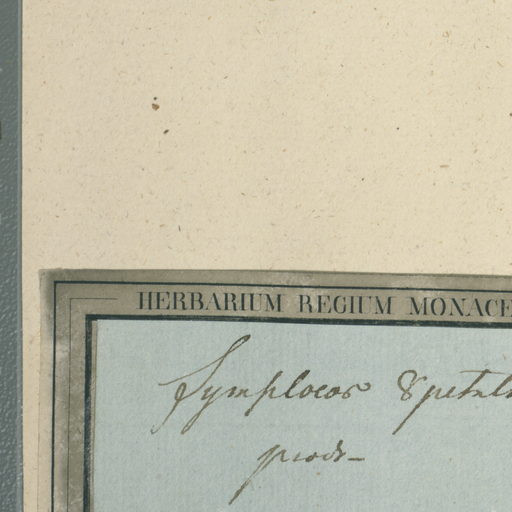 HERBARIUM REGIUM MONACE
Symplocos 8petal